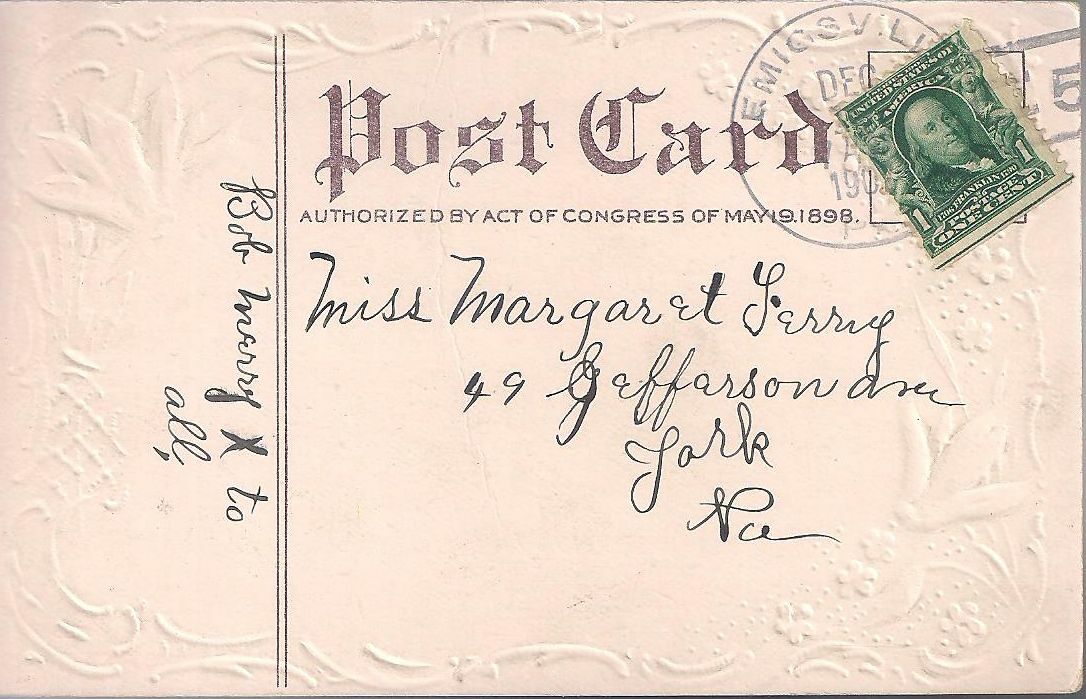 Post Card
AUTHORIZED BY ACT OF CONGRESS OF MAY 19.1898.
EMIGSVILL
DEC
190
5
UNITED STATES OF
AMERICA
FRANKLIN
POSTAGE
1 1
ONE CENT
Miss Margaret Ferry
49 Jefferson ave
York
Pa
Bob Merry X to
all,